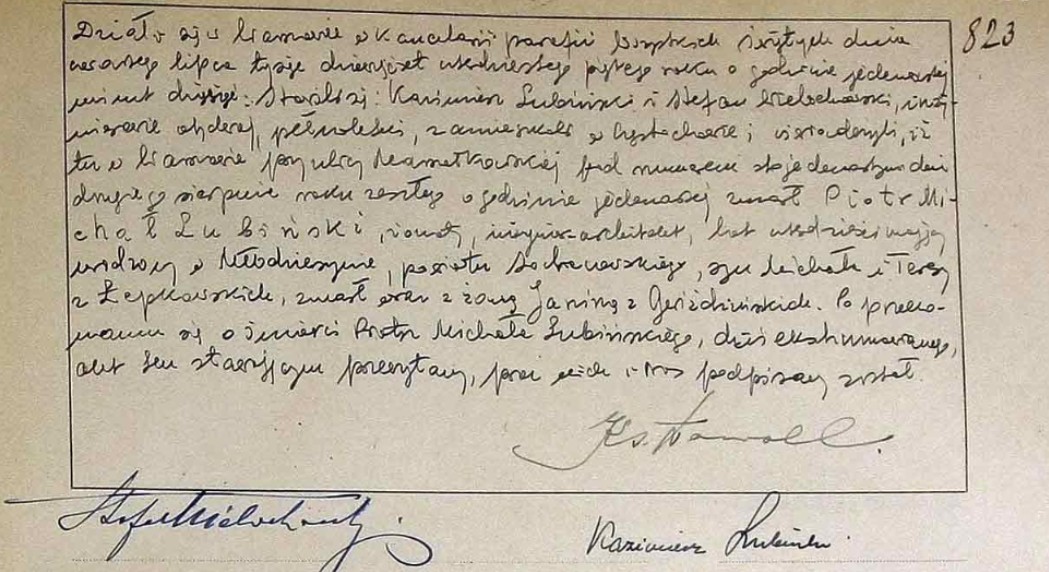 823
Działo się w Warszawie w Kancelarii parafii Wszystkich Świętych dnia
czwartego lipca tysiąc dziewięćset czterdziestego piątego roku o godzinie jedenastej
minut dwieście: Stawili się: Kazimierz Lubiński i Stefan Wielochowski,
obydwaj, pełnoletni, zamieszkali w Częstochowie i oświadczyli, iż
tu w Warszawie przy ulicy Marszałkowskiej pod numerem sto jedenastym dnia
drugiego sierpnia roku zeszłego o godzinie jedenastej zmarł Piotr Mi-
chał Lubiński, żonaty, inżynier-architekt, lat mający
urodzony w Młodzieszynie, powiatu Sochaczewskiego, syn Michała i Teresy
z Łepkowskich, zmarł wraz z żoną Janiną z . Po przeko-
naniu się o śmierci Piotra Michała Lubińskiego, dziś ekshumowanego,
akt ten stawającym przeczytany, przez nich i Nas podpisany został.
Ks.
Kazimierz Lubiński